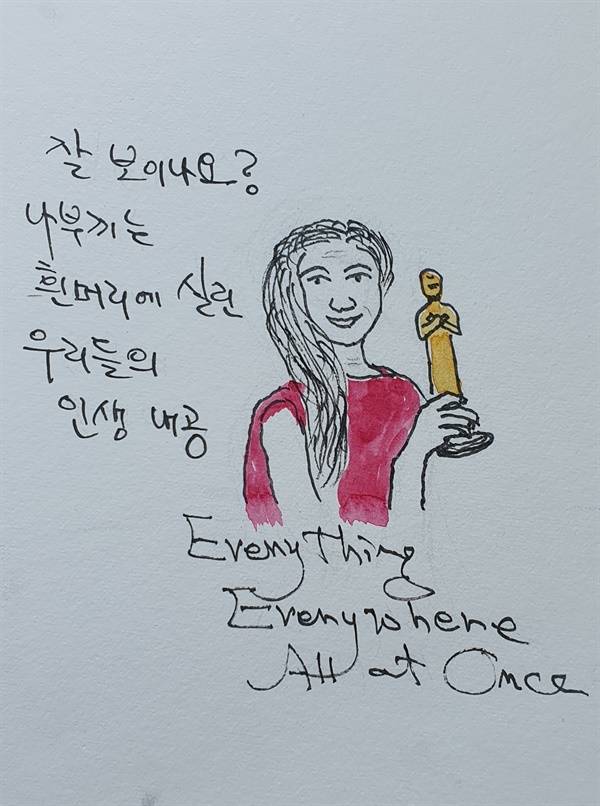 잘 보이나요?
나부끼는
흰머리에 실린
우리들의
인생 내공
Everything
Everywhere
All at Once